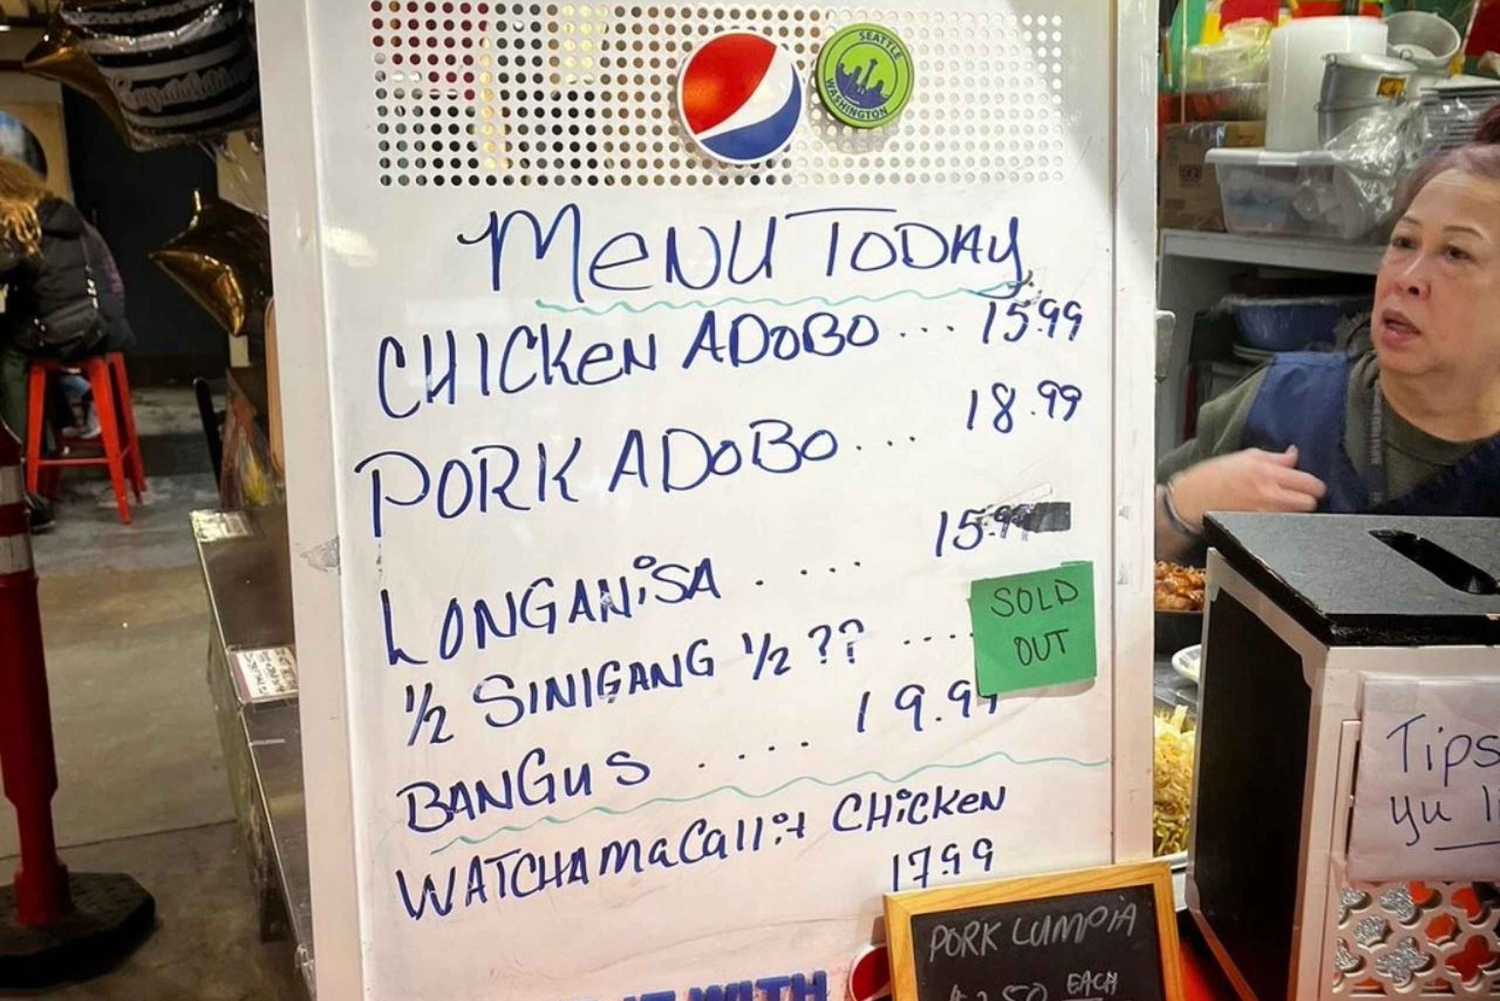 SEATTLE
WASHINGTON
MENU TODAY
CHICKEN ADOBO ... 15.99
PORK ADOBO ... 18.99
LONGANiSA ..... 15.99
½ SINIGANG ½ ?? ....
SOLD
OUT
BANGUS .... 19.99
WATCHAMaCallit CHiCKEN
17.99
PORK LUMPIA
EACH
IT WITH
Tips
yu